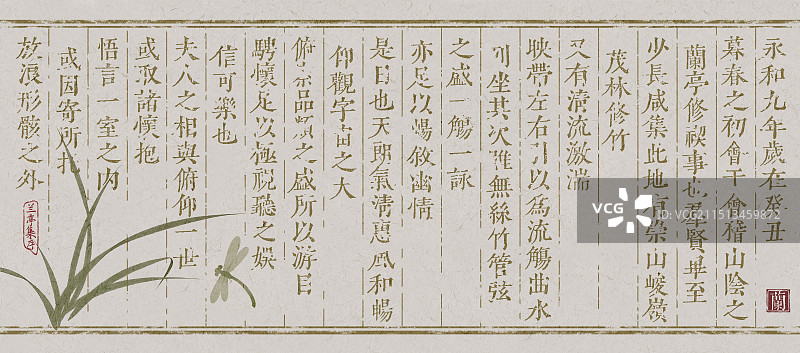 永和九年歲在癸丑
暮春之初會于會稽山陰之
蘭亭修禊事也羣賢畢至
少長咸集此地有崇山峻嶺
茂林修竹
又有清流激湍
映帶左右引以為流觴曲水
列坐其次雖無絲竹管弦
之盛一觴一詠
亦足以暢敘幽情
是日也天朗氣清惠風和暢
仰觀宇宙之大
俯察品類之盛所以游目
騁懷足以極視聽之娛
信可樂也
夫人之相與俯仰一世
或取諸懷抱
悟言一室之內
或因寄所托
放浪形骸之外
兰亭集序
蘭
VCG
VCG211513459872